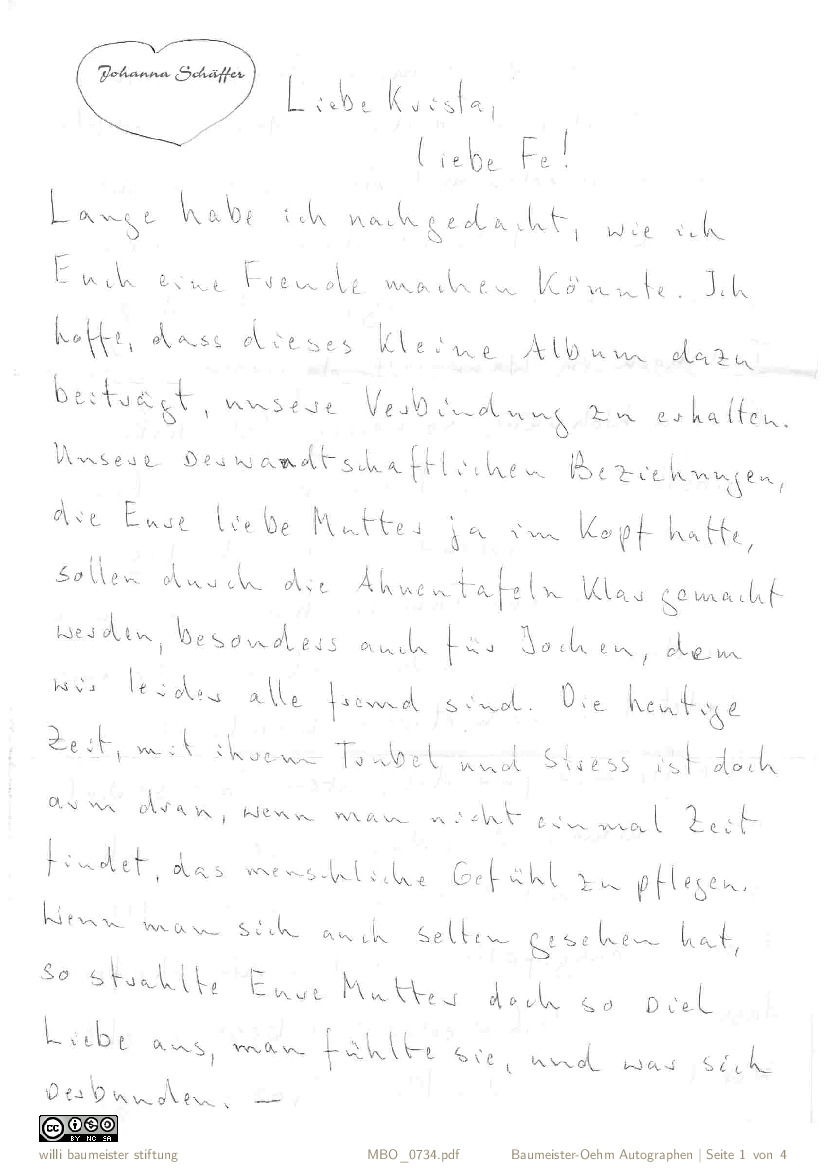 Johanna Schäffer
Liebe Krista,
liebe Fe!
Lange habe ich nachgedacht, wie ich
Euch eine Freude machen könnte. Ich
hoffe, dass dieses kleine Album dazu
beiträgt, unsere Verbindung zu erhalten.
Unsere verwandtschaftlichen Beziehungen,
die Eure liebe Mutter ja im Kopf hatte,
sollen durch die Ahnentafeln klar gemacht
werden, besonders auch für Jochen, dem
wir leider alle fremd sind. Die heutige
Zeit, mit ihrem Trubel und Stress ist doch
arm dran, wenn man nicht einmal Zeit
findet, das menschliche Gefühl zu pflegen.
Wenn man sich auch selten gesehen hat,
so strahlte Eure Mutter doch so viel
Liebe aus, man fühlte sie, und war sich
verbunden. —
CC BY NC SA
willi baumeister stiftung MBO_0734.pdf Baumeister-Oehm Autographen | Seite 1 von 4